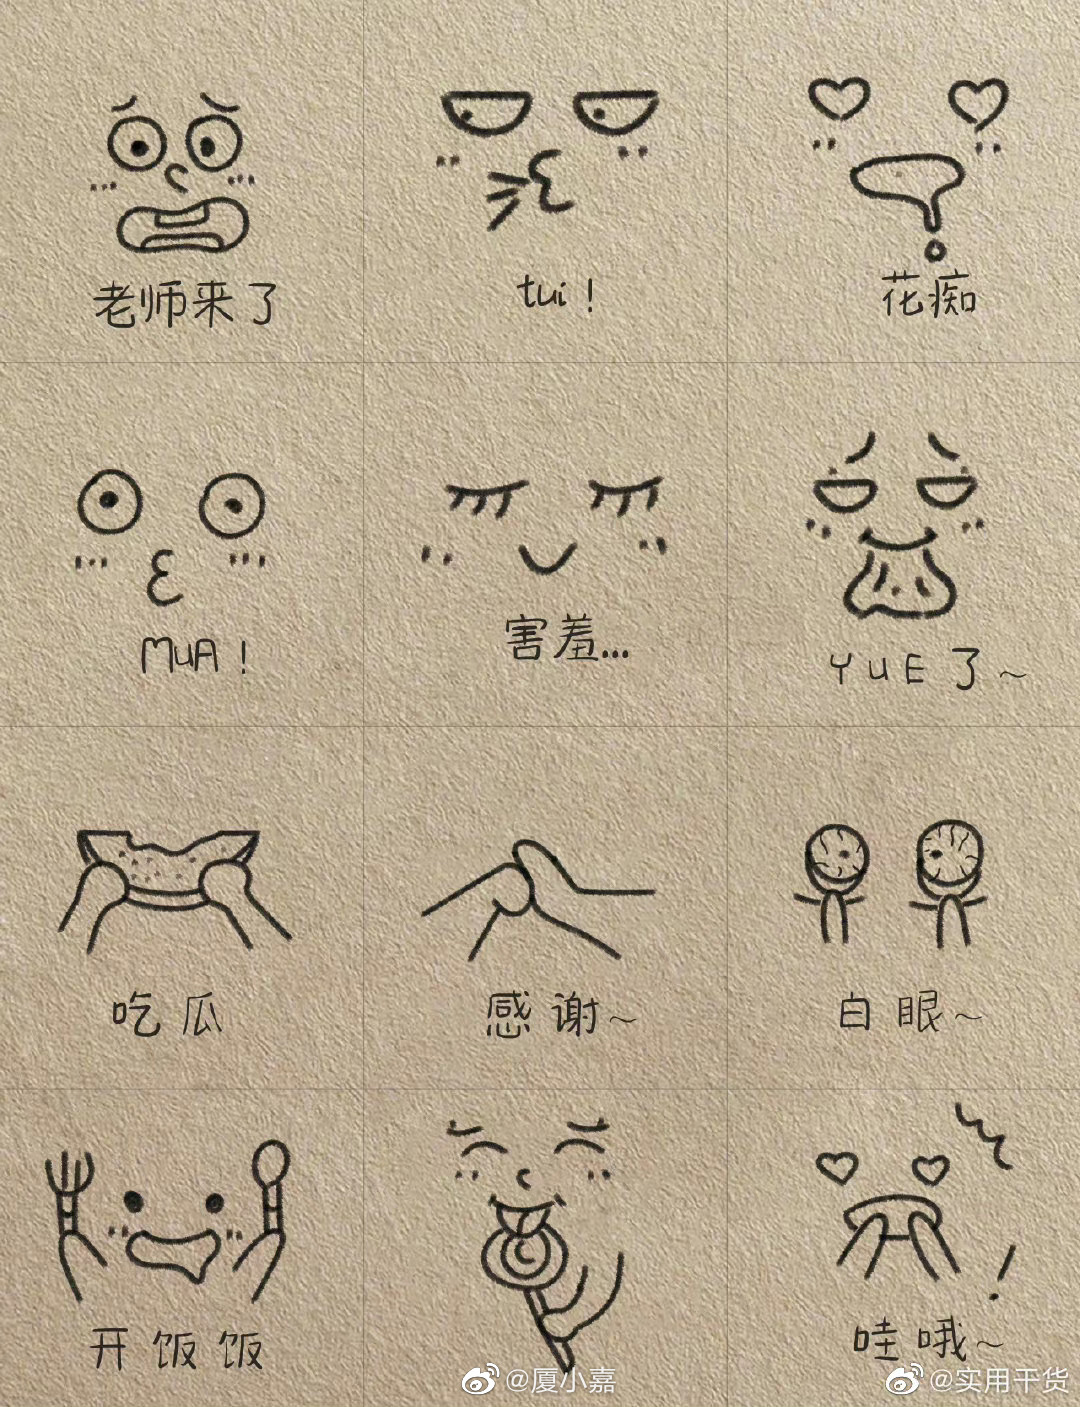 老师来了
tui！
花痴
MUA！
害羞...
YUE了~
吃瓜
感谢~
白眼~
开饭饭
哇哦~
@厦小嘉
@实用干货